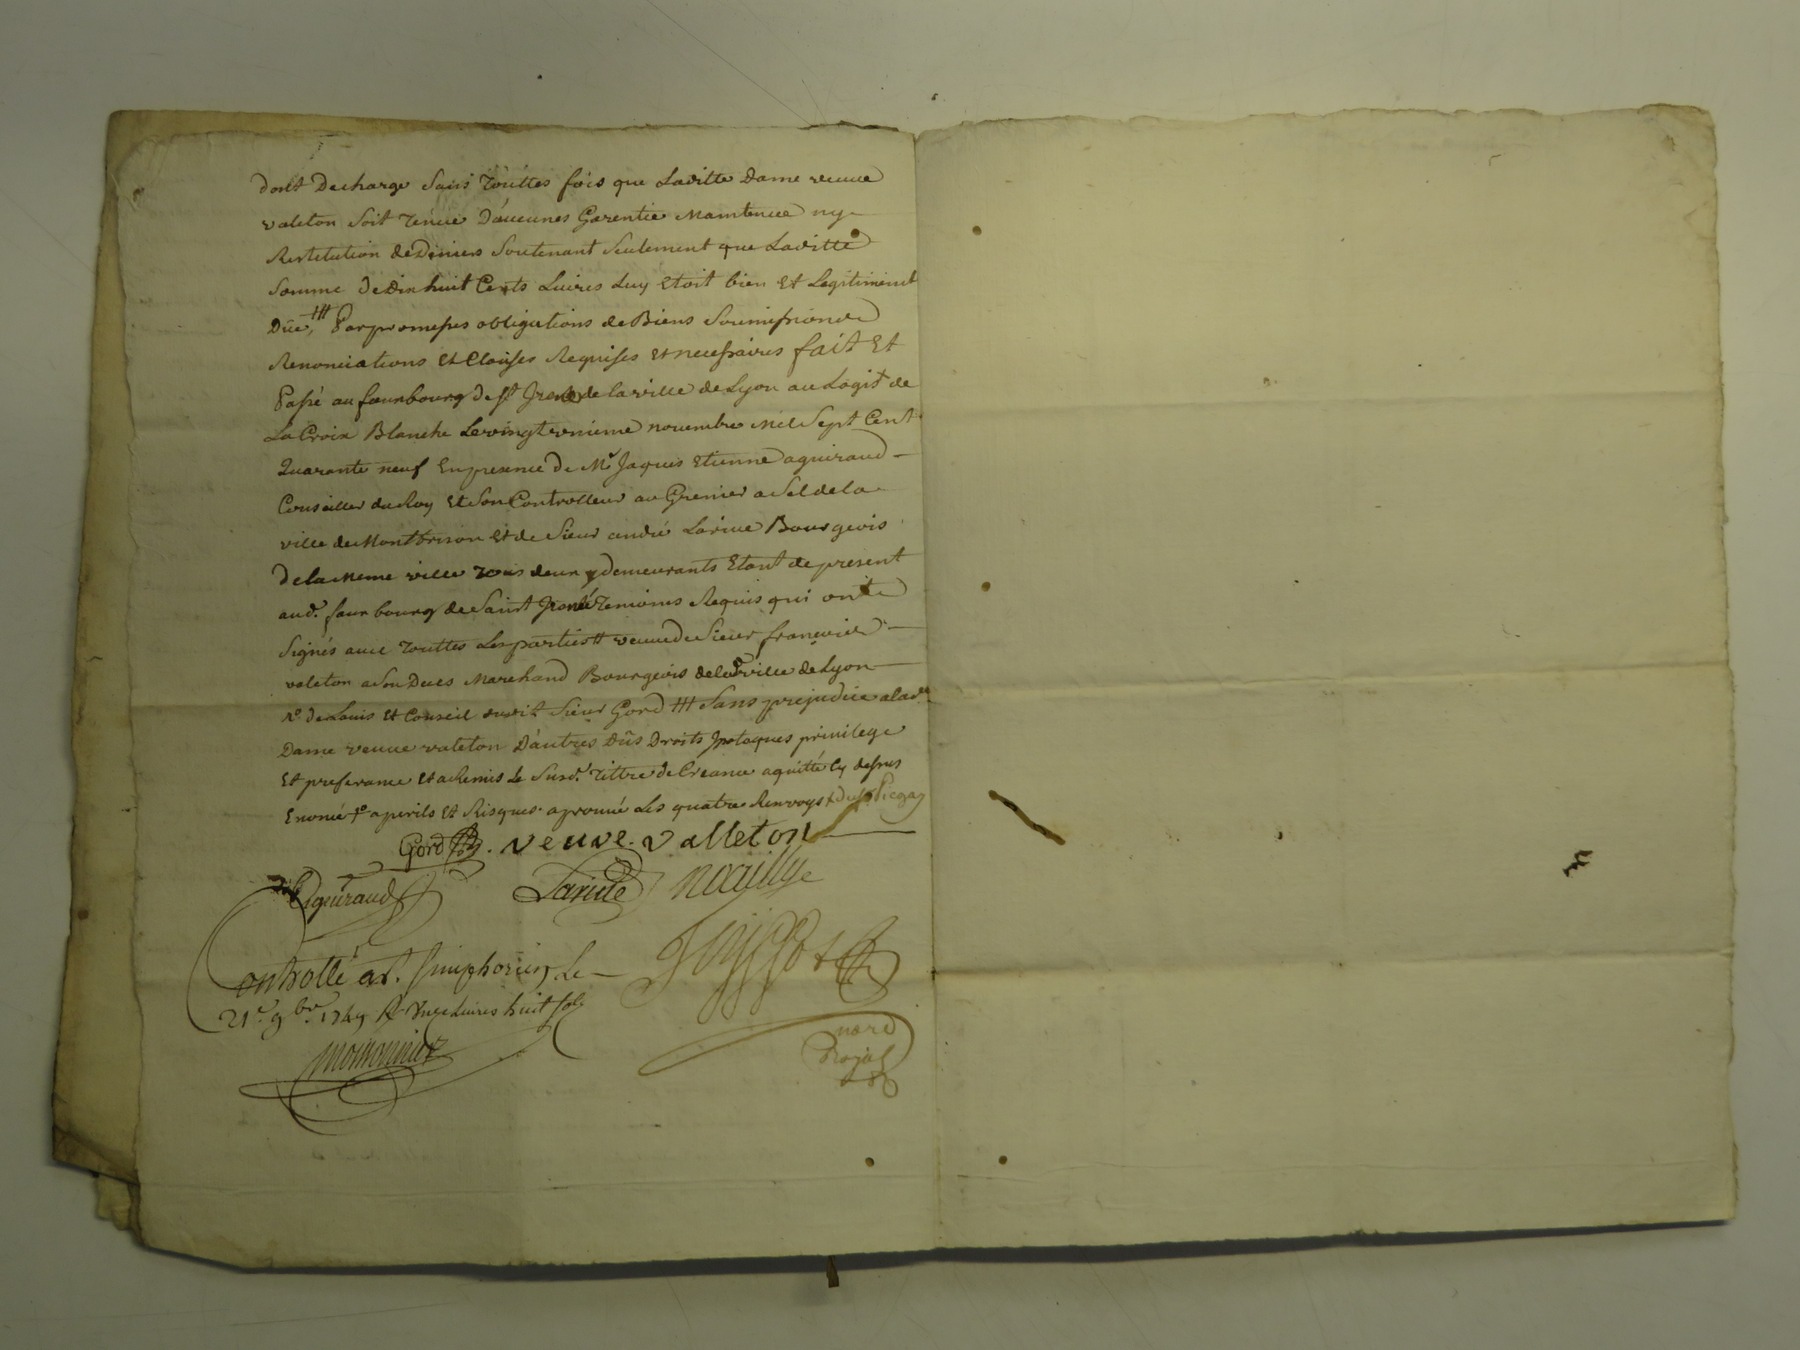 dont Decharge Sans Touttes fois que Laditte Dame veuve
valeton Soit Tenue D'aucunes Garentie Maintenue ny
Restitution de Deniers Soutenant Seulement que Laditte
Somme de dix huit Cents Livres Luy etoit bien et Legitiment
Düe, ╫ Par promesses obligations de Biens Soumissions
Renonciations et Clauses Requises et necessaires fait Et
Passé au faurbourg de St Irené de la ville de Lyon au Logit de
La Croix Blanche Le vingt unieme novembre Mil Sept Cent
Quarante neuf En presence de Mr Jaques Etienne aguiraud
Conseiller du Roy Et Son Controlleur au Grenier a Sel de la
ville de Montbrison et de Sieur andré Larive Bourgeois
de la Meme ville Tous deux y demeurants Etant de present
aud. faurbourg de Saint Irené Temoins Requis qui ont
Signés avec Touttes Les parties # veuve de Sieur françois
valeton a Son Deces Marchand Bourgeois de lad ville de Lyon
de Louis Et Conseil dudit Sieur Gord ╫ Sans prejudice a lad.
Dame veuve valeton D'autres Dûs Droits Ipotaques privilege
Et preferance et a Remis Le Susd. Tittre de Creance aquitté Cy dessus
Enoncé a perils et Risques aprouvé Les quatre Renvoys
Gord . veuve . valleton
Aguiraud Larive noailly
Controllé a St. Simphorien Le
21e 9bre 1749 R huit sols
Royal